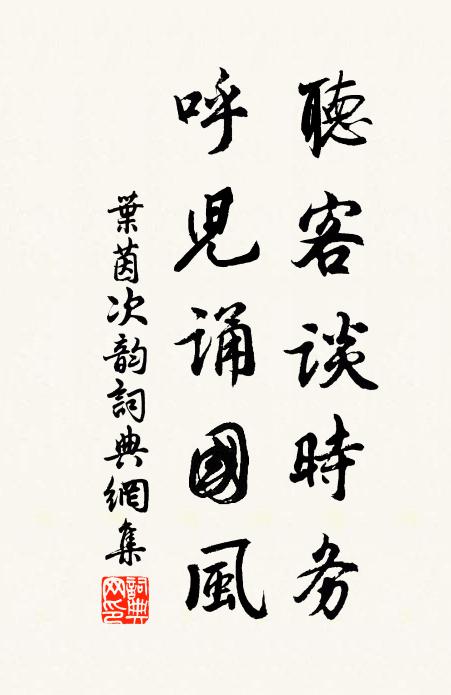 聽客談時务
呼児誦國風
葉茵次韵詞典網集
詞典网印